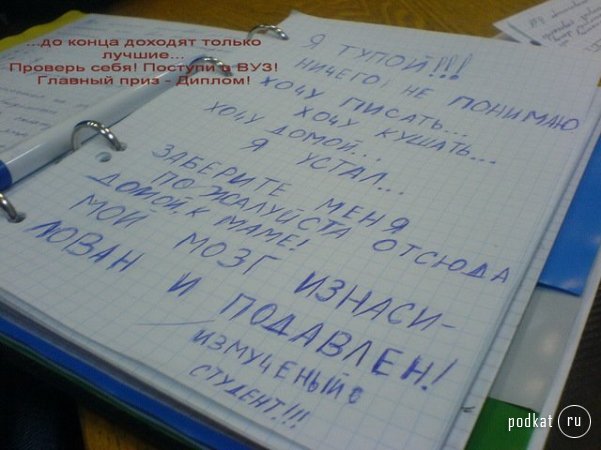 ...до конца доходят только
лучшие...
Проверь себя! Поступи в ВУЗ!
Главный приз - Диплом!
Я ТУПОЙ!!!
НИЧЕГО НЕ ПОНИМАЮ
ХОЧУ ПИСАТЬ...
ХОЧУ КУШАТЬ...
ХОЧУ ДОМОЙ...
Я УСТАЛ...
ЗАБЕРИТЕ МЕНЯ
ПОЖАЛУЙСТА ОТСЮДА
ДОМОЙ, К МАМЕ!
МОЙ МОЗГ ИЗНАСИ-
ЛОВАН И ПОДАВЛЕН!
ИЗМУЧЕНЫЙ
СТУДЕНТ!!!
podkat ru